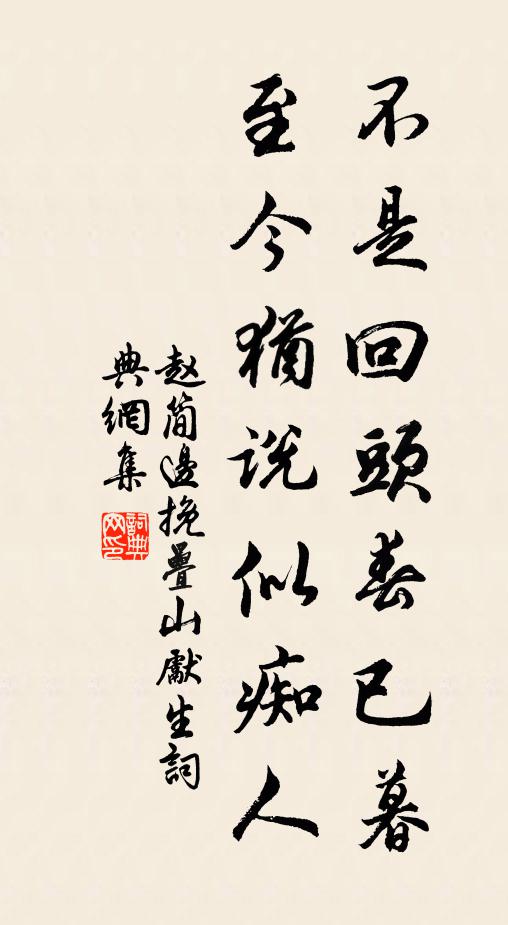 不是回頭春已暮
至今猶説似痴人
赵簡邊挽疊山獻生詞
典網集
詞典
网印